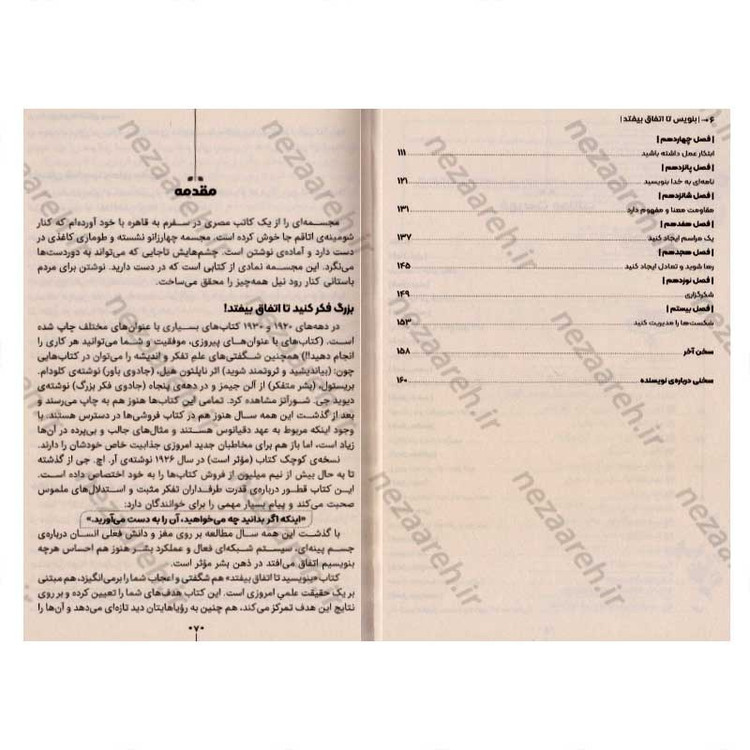 ۶ → | بنویس تا اتفاق بیفتد |
| فصل چهاردهم |
ابتکار عمل داشته باشید ۱۱۱
| فصل پانزدهم |
نامه‌ای به خدا بنویسید ۱۲۱
| فصل شانزدهم |
مقاومت معنا و مفهوم دارد ۱۳۱
| فصل هفدهم |
یک مراسم ایجاد کنید ۱۳۷
| فصل هجدهم |
رها شوید و تعادل ایجاد کنید ۱۴۵
| فصل نوزدهم |
شکرگزاری ۱۴۹
| فصل بیستم |
شکست‌ها را مدیریت کنید ۱۵۳
سخن آخر ۱۵۸
سخنی درباره‌ی نویسنده ۱۶۰
مقدمه
مجسمه‌ای را از یک کاتب مصری در سفرم به قاهره با خود آورده‌ام که کنار
شومینه‌ی اتاقم جا خوش کرده است. مجسمه چهارزانو نشسته و طوماری کاغذی در
دست دارد و آماده‌ی نوشتن است. چشم‌هایش تاجایی که می‌تواند به دوردست‌ها
می‌نگرد. این مجسمه نمادی از کتابی است که در دست دارید. نوشتن برای مردم
باستانی کنار رود نیل همه‌چیز را محقق می‌ساخت.
بزرگ فکر کنید تا اتفاق بیفتد!
در دهه‌های ۱۹۲۰ و ۱۹۳۰ کتاب‌های بسیاری با عنوان‌های مختلف چاپ شده
است. (کتاب‌های با عنوان‌های پیروزی، موفقیت و شما می‌توانید هر کاری را
انجام دهید!) همچنین شگفتی‌های علم تفکر و اندیشه را می‌توان در کتاب‌هایی
چون: (بیاندیشید و ثروتمند شوید) اثر ناپلئون هیل، (جادوی باور) نوشته‌ی کلودام.
بریستول، (بشر متفکر) از آلن جیمز و در دهه‌ی پنجاه (جادوی فکر بزرگ) نوشته‌ی
دیوید جی. شوراتز مشاهده کرد. تمامی این کتاب‌ها هنوز هم به چاپ می‌رسند و
بعد از گذشت این همه سال هنوز هم در کتاب فروشی‌ها در دسترس هستند. با
وجود اینکه مربوط به عهد دقیانوس هستند و مثال‌های جالب و بی‌پرده در آن‌ها
زیاد است، اما باز هم برای مخاطبان جدید امروزی جذابیت خاص خودشان را دارند.
نسخه‌ی کوچک کتاب (مؤثر است) در سال ۱۹۲۶ نوشته‌ی آر. اچ. جی از گذشته
تا به حال بیش از نیم میلیون از فروش کتاب‌ها را به خود اختصاص داده است.
این کتاب قطور درباره‌ی قدرت طرفداران تفکر مثبت و استدلال‌های ملموس
صحبت می‌کند و پیام بسیار مهمی را برای خوانندگان دارد:
«اینکه اگر بدانید چه می‌خواهید، آن را به دست می‌آورید.»
با گذشت این همه سال مطالعه بر روی مغز و دانش فعلی انسان درباره‌ی
جسم پینه‌ای، سیستم شبکه‌ای فعال و عملکرد بشر هنوز هم احساس هرچه
بنویسیم اتفاق می‌افتد در ذهن بشر مؤثر است.
کتاب «بنویسید تا اتفاق بیفتد» هم شگفتی و اعجاب شما را برمی‌انگیزد، هم مبتنی
بر یک حقیقت علمی امروزی است. این کتاب هدف‌های شما را تعیین کرده و بر روی
نتایج این هدف تمرکز می‌کند، هم چنین به رؤیاهایتان دید تازه‌ای می‌دهد و آن‌ها را
۰۷۰
nezaareh.ir